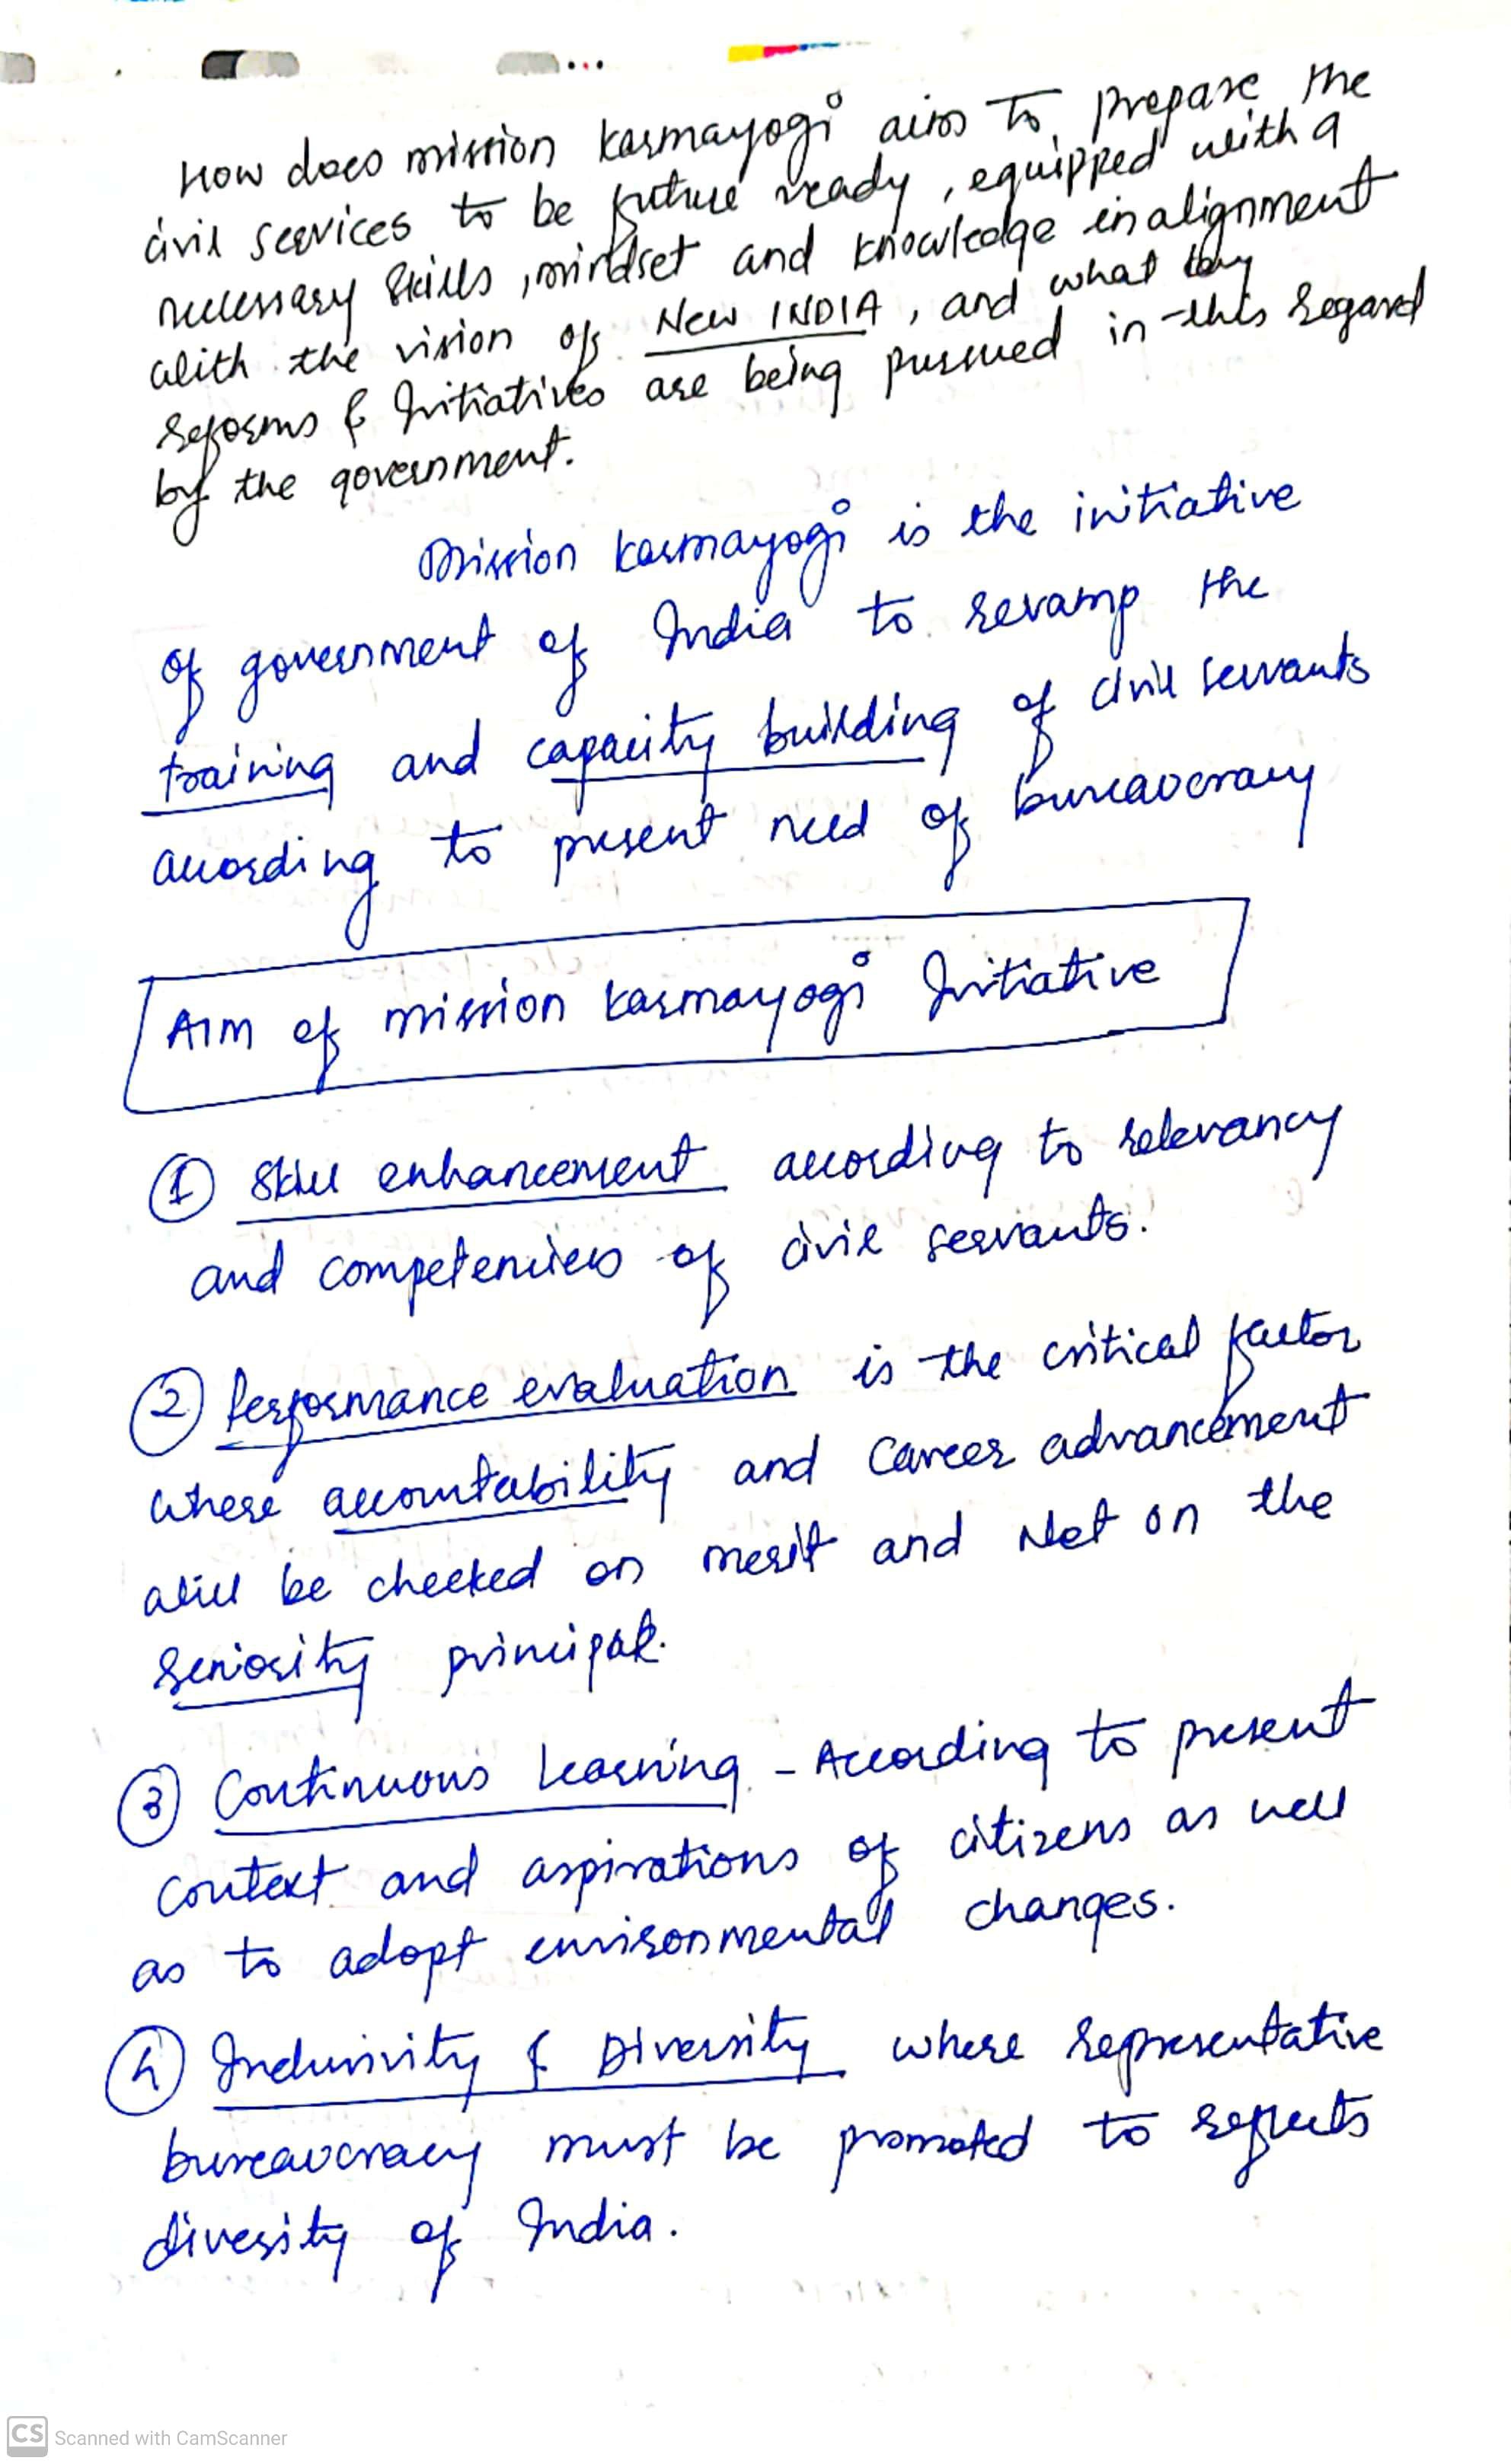 How does mission karmayogi aims to prepare the
civil services to be future ready, equipped with a
necessary skills, mindset and knowledge in alignment
with the vision of New INDIA, and what
reforms & Initiatives are being pursued in this regard
by the government.
Mission karmayogi is the initiative
of government of India to revamp the
training and capacity building of civil servants
according to present need of bureaucracy
AIM of mission karmayogi Initiative
① Skill enhancement according to relevancy
and competencies of civil servants.
② Performance evaluation is the critical factor
where accountability and career advancement
will be checked on merit and Not on the
seniority principal.
③ Continuous learning - According to present
context and aspirations of citizens as well
as to adopt environmental changes.
④ Inclusivity & Diversity where representative
bureaucracy must be promoted to reflects
diversity of India.
CS Scanned with CamScanner